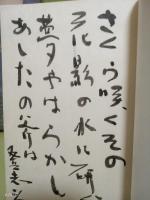 さくら咲くその
花影の水に研ぐ
夢やはらかし
あしたの斧は
登志夫